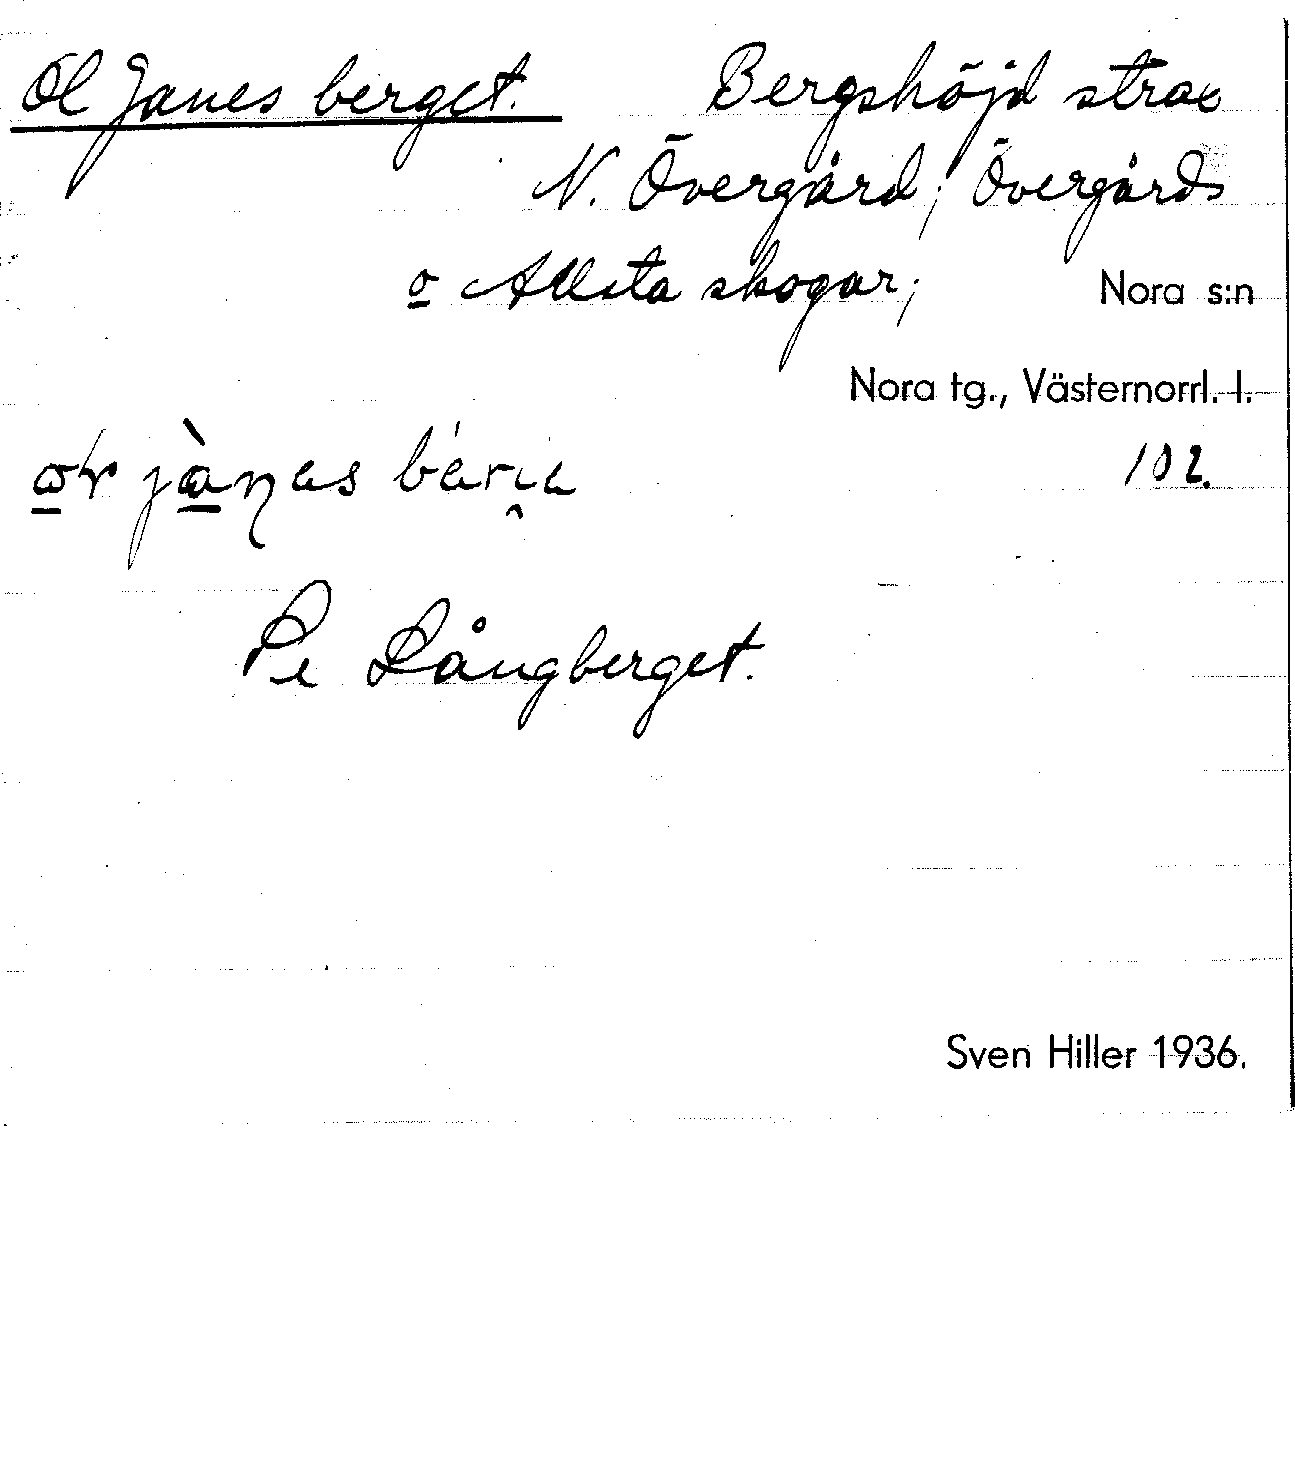 Ol Janes berget. Bergshöjd strax
N. Övergård; Övergårds
o Allsta skogar; Nora s:n
Nora tg., Västernorrl. l.
102.
Pe Långberget.
Sven Hiller 1936.